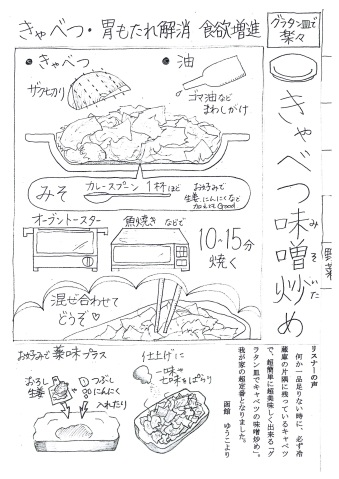 きゃべつ・胃もたれ解消 食欲増進
グラタン皿で
楽々
きゃべつ味噌炒め
みそいた
野菜
●きゃべつ
ザク切り
●油
ゴマ油など
まわしがけ
みそ
カレースプーン1杯ほど
お好みで
生姜、にんにくなど
加えてもGood
オーブントースター
魚焼きなどで
10〜15分
焼く
混ぜ合わせて
どうぞ♡
お好みで薬味プラス
おろし
生姜
つぶし
にんにく
入れたり
仕上げに
一味や
七味をぱらり
リスナーの声
何か一品足りない時に、必ず冷
蔵庫の片隅に残っているキャベツ
で、超簡単に超美味しく出来る「グ
ラタン皿でキャベツの味噌炒め」。
我が家の超定番となりました。
函館 ゆうこより